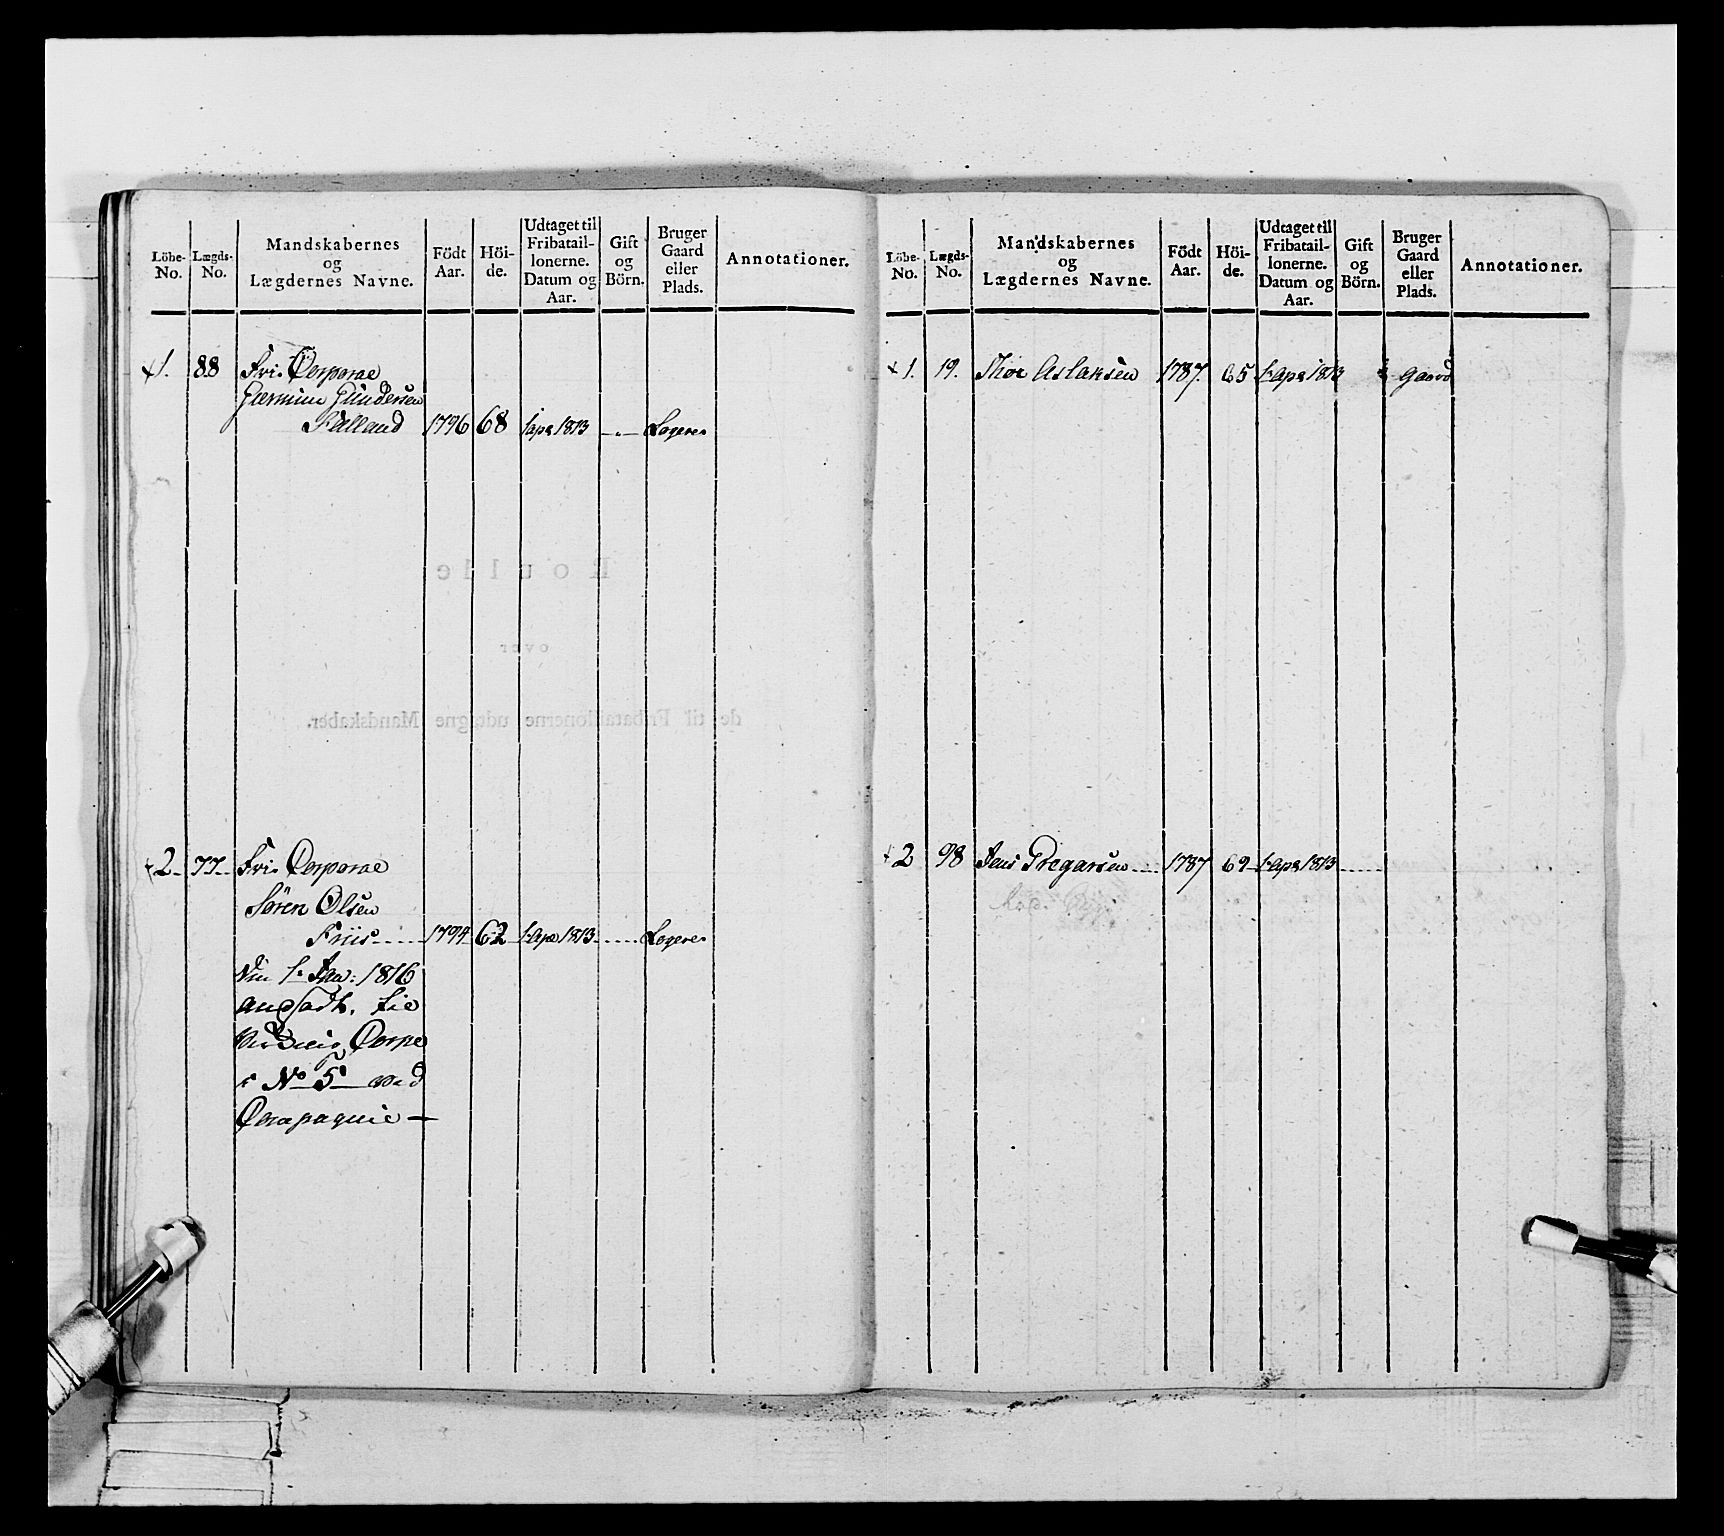 Löbe- No. Lægds- No. Mandskabernes og Lægdernes Navne. Födt Aar. Höi- de. Udtaget til Fribatail- lonerne. Datum og Aar. Gift og Börn. Bruger Gaard eller Plads. Annotationer.
1. 88 Fri Corporal
Gunder­sen
Falland 1796 68 1 apr 1813 Logerer
2 77 Fri Corporal
Sören Olsen
Friis 1794 62 1 Apr 1813 Logerer
1 Jan: 1816
ansadt. til
Corpr
i No 5 ved
Compagnie
Löbe- No. Lægds- No. Mandskabernes og Lægdernes Navne. Födt Aar. Höi- de. Udtaget til Fribatail- lonerne. Datum og Aar. Gift og Börn. Bruger Gaard eller Plads. Annotationer.
1. 19. Thor Aslaksen 1787. 65 1 apr 1813 gaard
2 98 Jens Gregarsen 1787 69 1 apr 1813